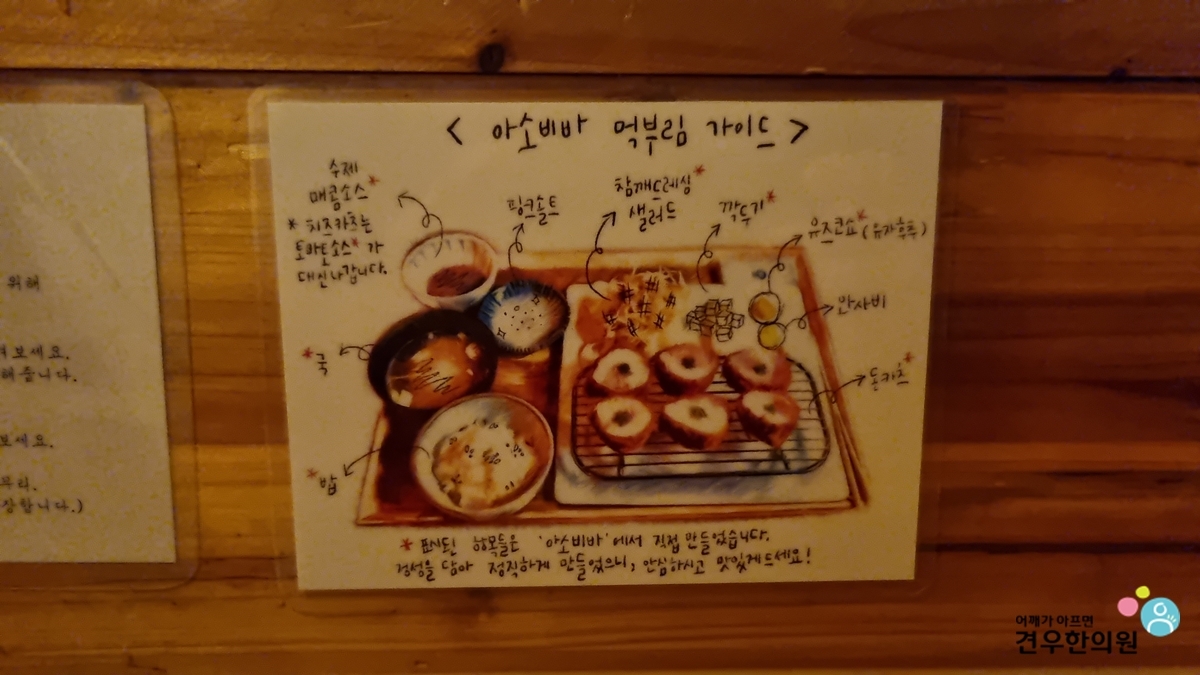 < 아소비바 먹부림 가이드 >
수제
매콤소스*
* 치즈카츠는
토마토소스*가
대신나갑니다.
핑크솔트
참깨드레싱*
샐러드
깍두기*
유즈코쇼*(유자후추)
와사비
돈카츠*
*국
*밥
* 표시된 항목들은 '아소비바'에서 직접 만들었습니다.
정성을 담아 정직하게 만들었으니, 안심하시고 맛있게드세요!
위해
보세요.
해줍니다.
보세요.
장합니다.)
어깨가 아프면
견우한의원